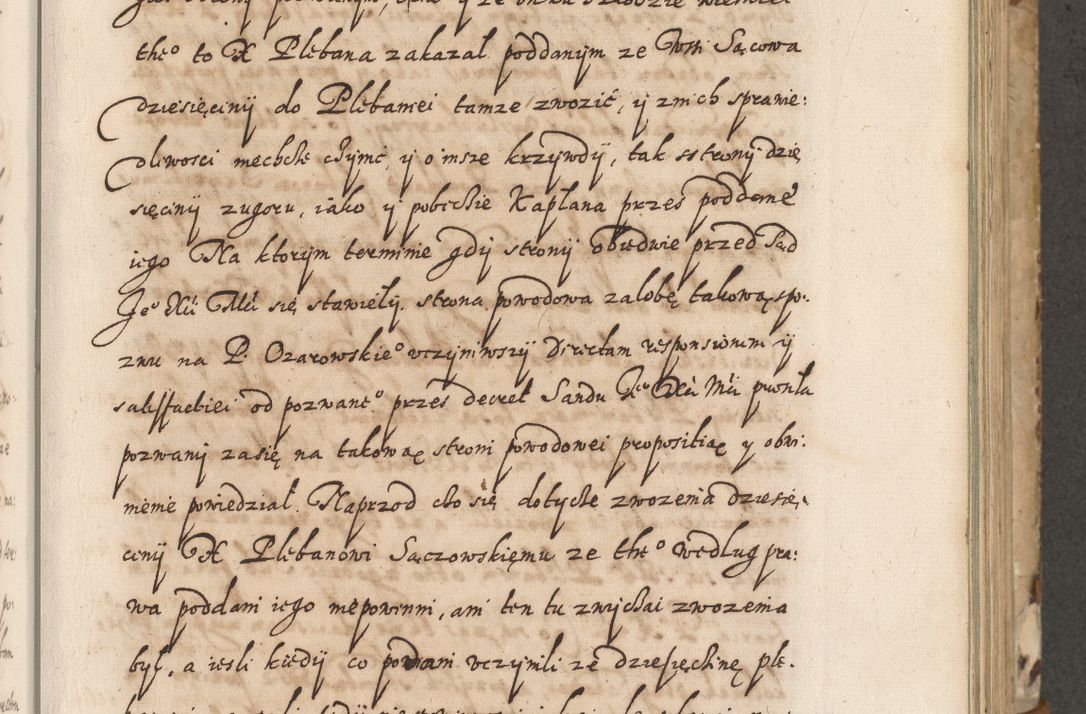 the° to X Plebana zakazał poddanym ze Wsi Sącowa
dziesięciny do Plebaniei tamże zwozić, y z nich sprawie:
dlewosci niechcił czÿnić, y o insze krzywdy, tak s strony dzie
sięciny zugoru, iako y pobicie Kapłana przes poddane
iego Na ktorym terminie gdy strony obiedwie przed Sąd
Je° Xci Mci się stawiely. strona powodowa załobę takową spo:
znu na P. Ozarowskie° uczyniwszy Directam responsionem y
satisfactiei od pozwane° przes decret Sandu Je° Xci Mci prosiła
pozwany zasię na takową strony powodowei propositią y obwi:
nienie powiedział. Naprzod cto się dotycze zwozenia dziesię:
ciny X Plebanowi Sączowskięmu ze the° według pra:
wa poddani iego niepowinni, ani ten tu zwyczai zwozenia
był, a iesli kiedy co poddani uczynili ze dziesięcinę ple: